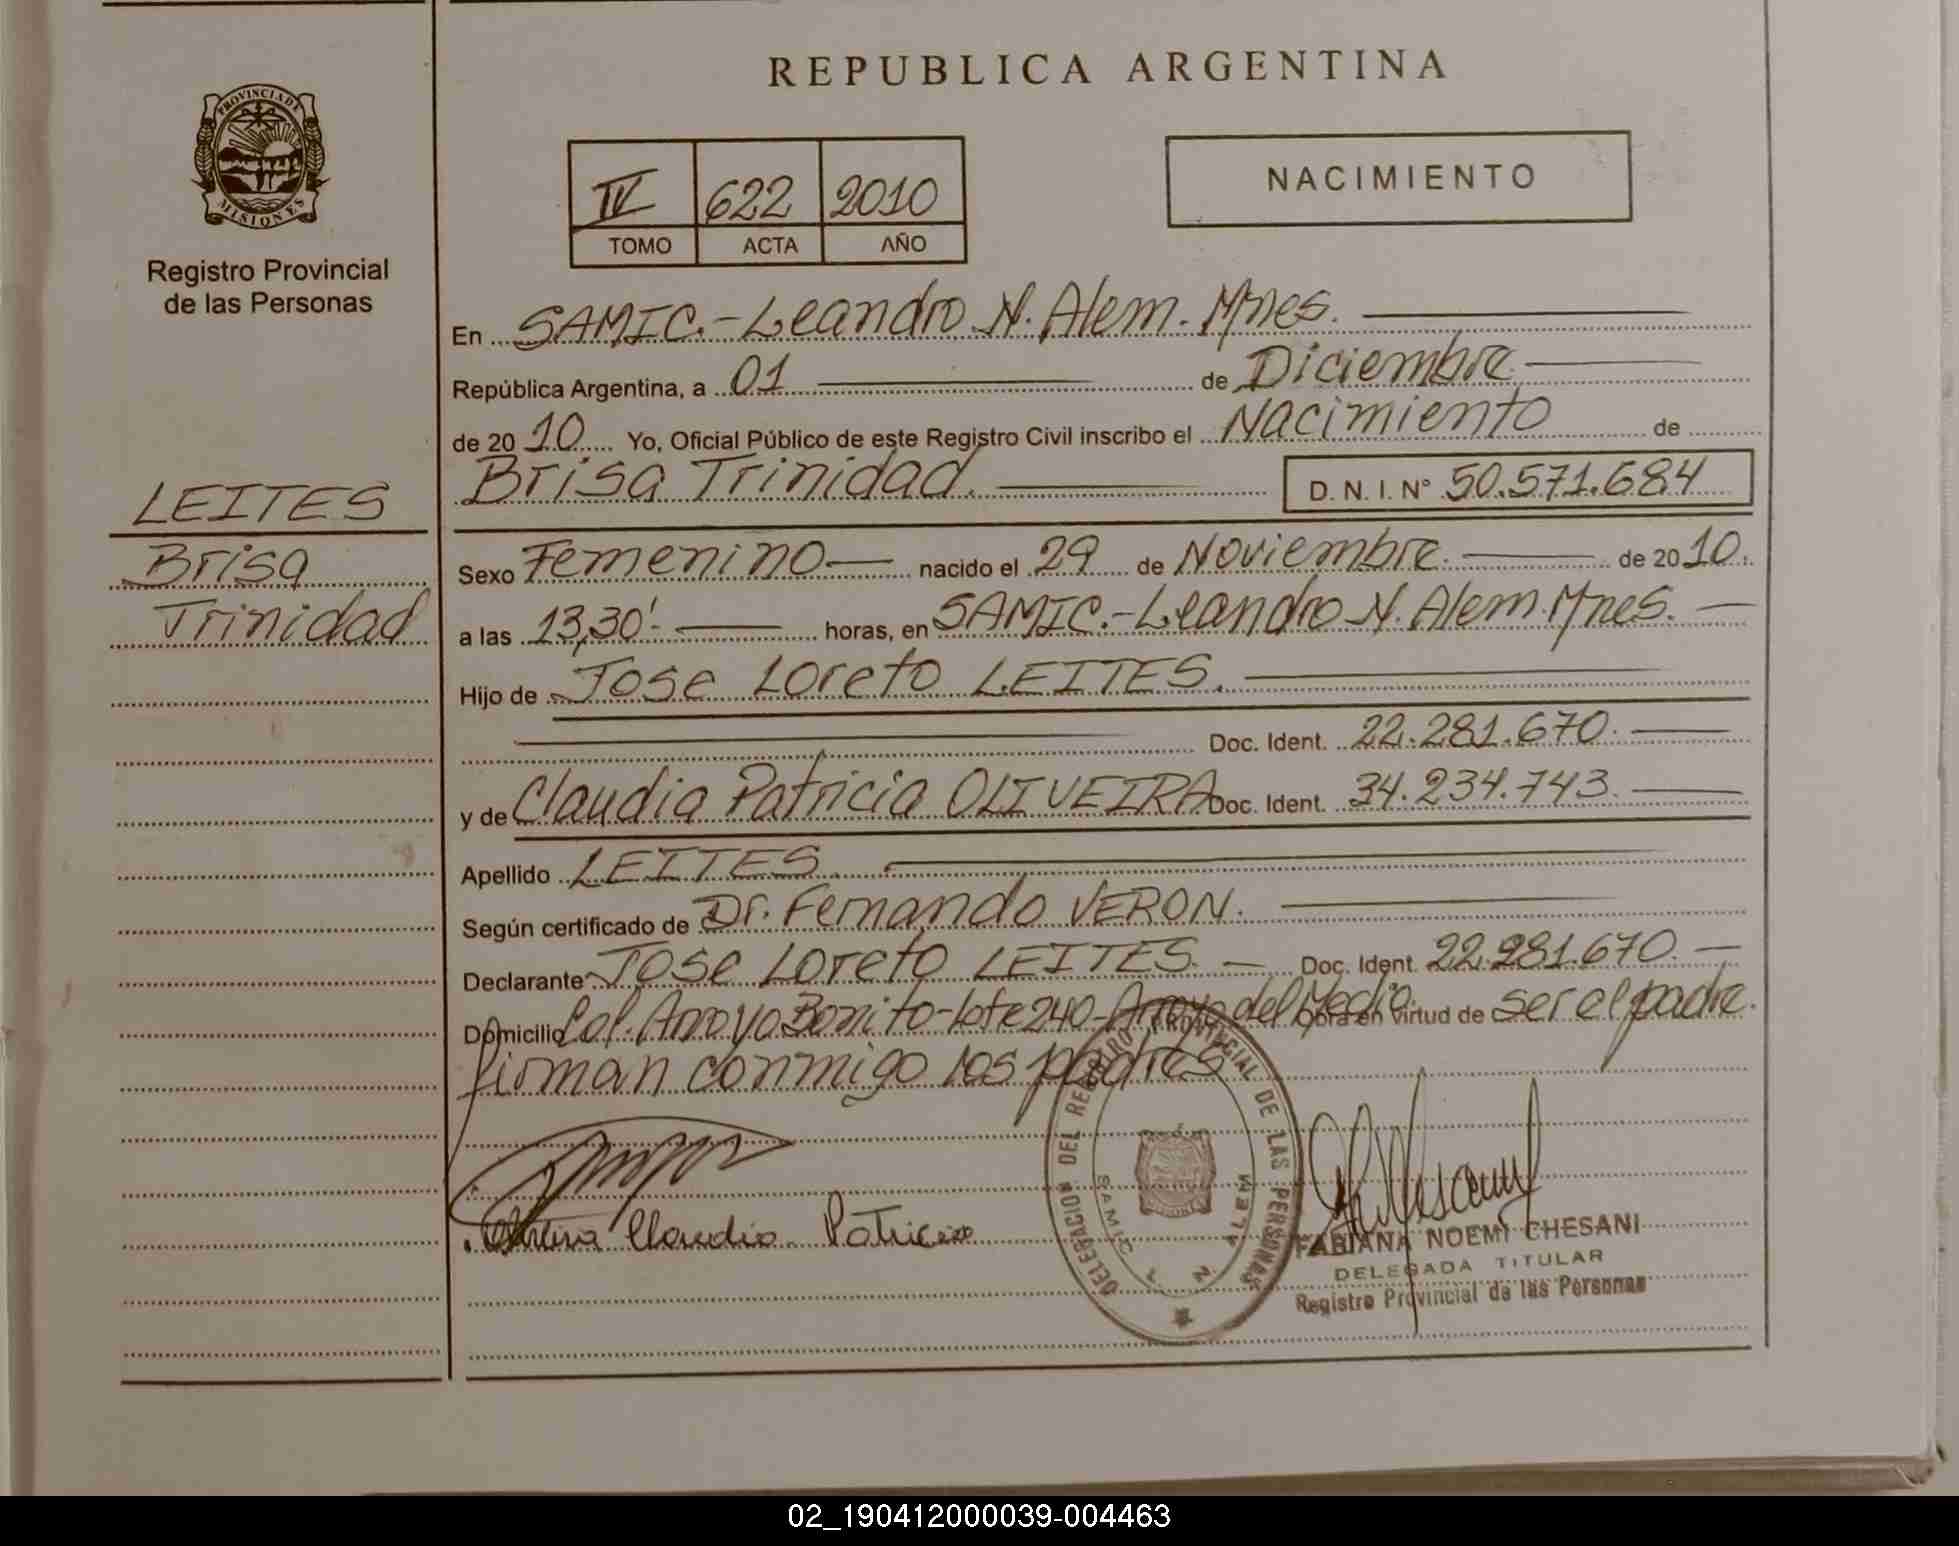 REPUBLICA ARGENTINA
PROVINCIA DE
MISIONES
Registro Provincial
de las Personas
IV 622 2010
TOMO ACTA AÑO
NACIMIENTO
En SAMIC.-Leandro N. Alem. Mnes.
República Argentina, a 01 de Diciembre
de 20 10 Yo, Oficial Público de este Registro Civil inscribo el Nacimiento de
Brisa Trinidad. D. N. I. N° 50.571.684
LEITES
Brisa
Trinidad
Sexo Femenino nacido el 29 de Noviembre. de 20 10.
a las 13,30'. horas, en SAMIC.-Leandro N. Alem. Mnes.
Hijo de Jose Loreto LEITES.
Doc. Ident. 22.281.670.
y de Claudia Patricia OLIVEIRA Doc. Ident. 34.234.743.
Apellido LEITES.
Según certificado de Dr. Fernando VERON.
Declarante Jose Loreto LEITES. Doc. Ident. 22.281.670.
Domicilio Col. Arroyo Bonito-lote 240-Arroyo del Medio. Obra en virtud de ser el padre.
firman conmigo los padres
Claudia Patricia
DELEGACION DEL REGISTRO PROVINCIAL DE LAS PERSONAS
SAMIC L. N. ALEM
MISIONES
FABIANA NOEMI CHESANI
DELEGADA TITULAR
Registro Provincial de las Personas
02_190412000039-004463